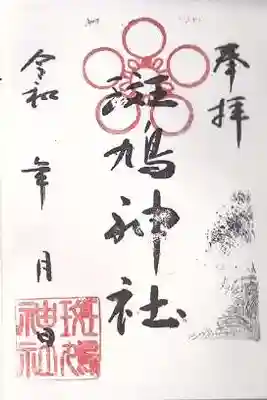 奉拝
斑鳩神社
令和 年 月
日
斑鳩
神社